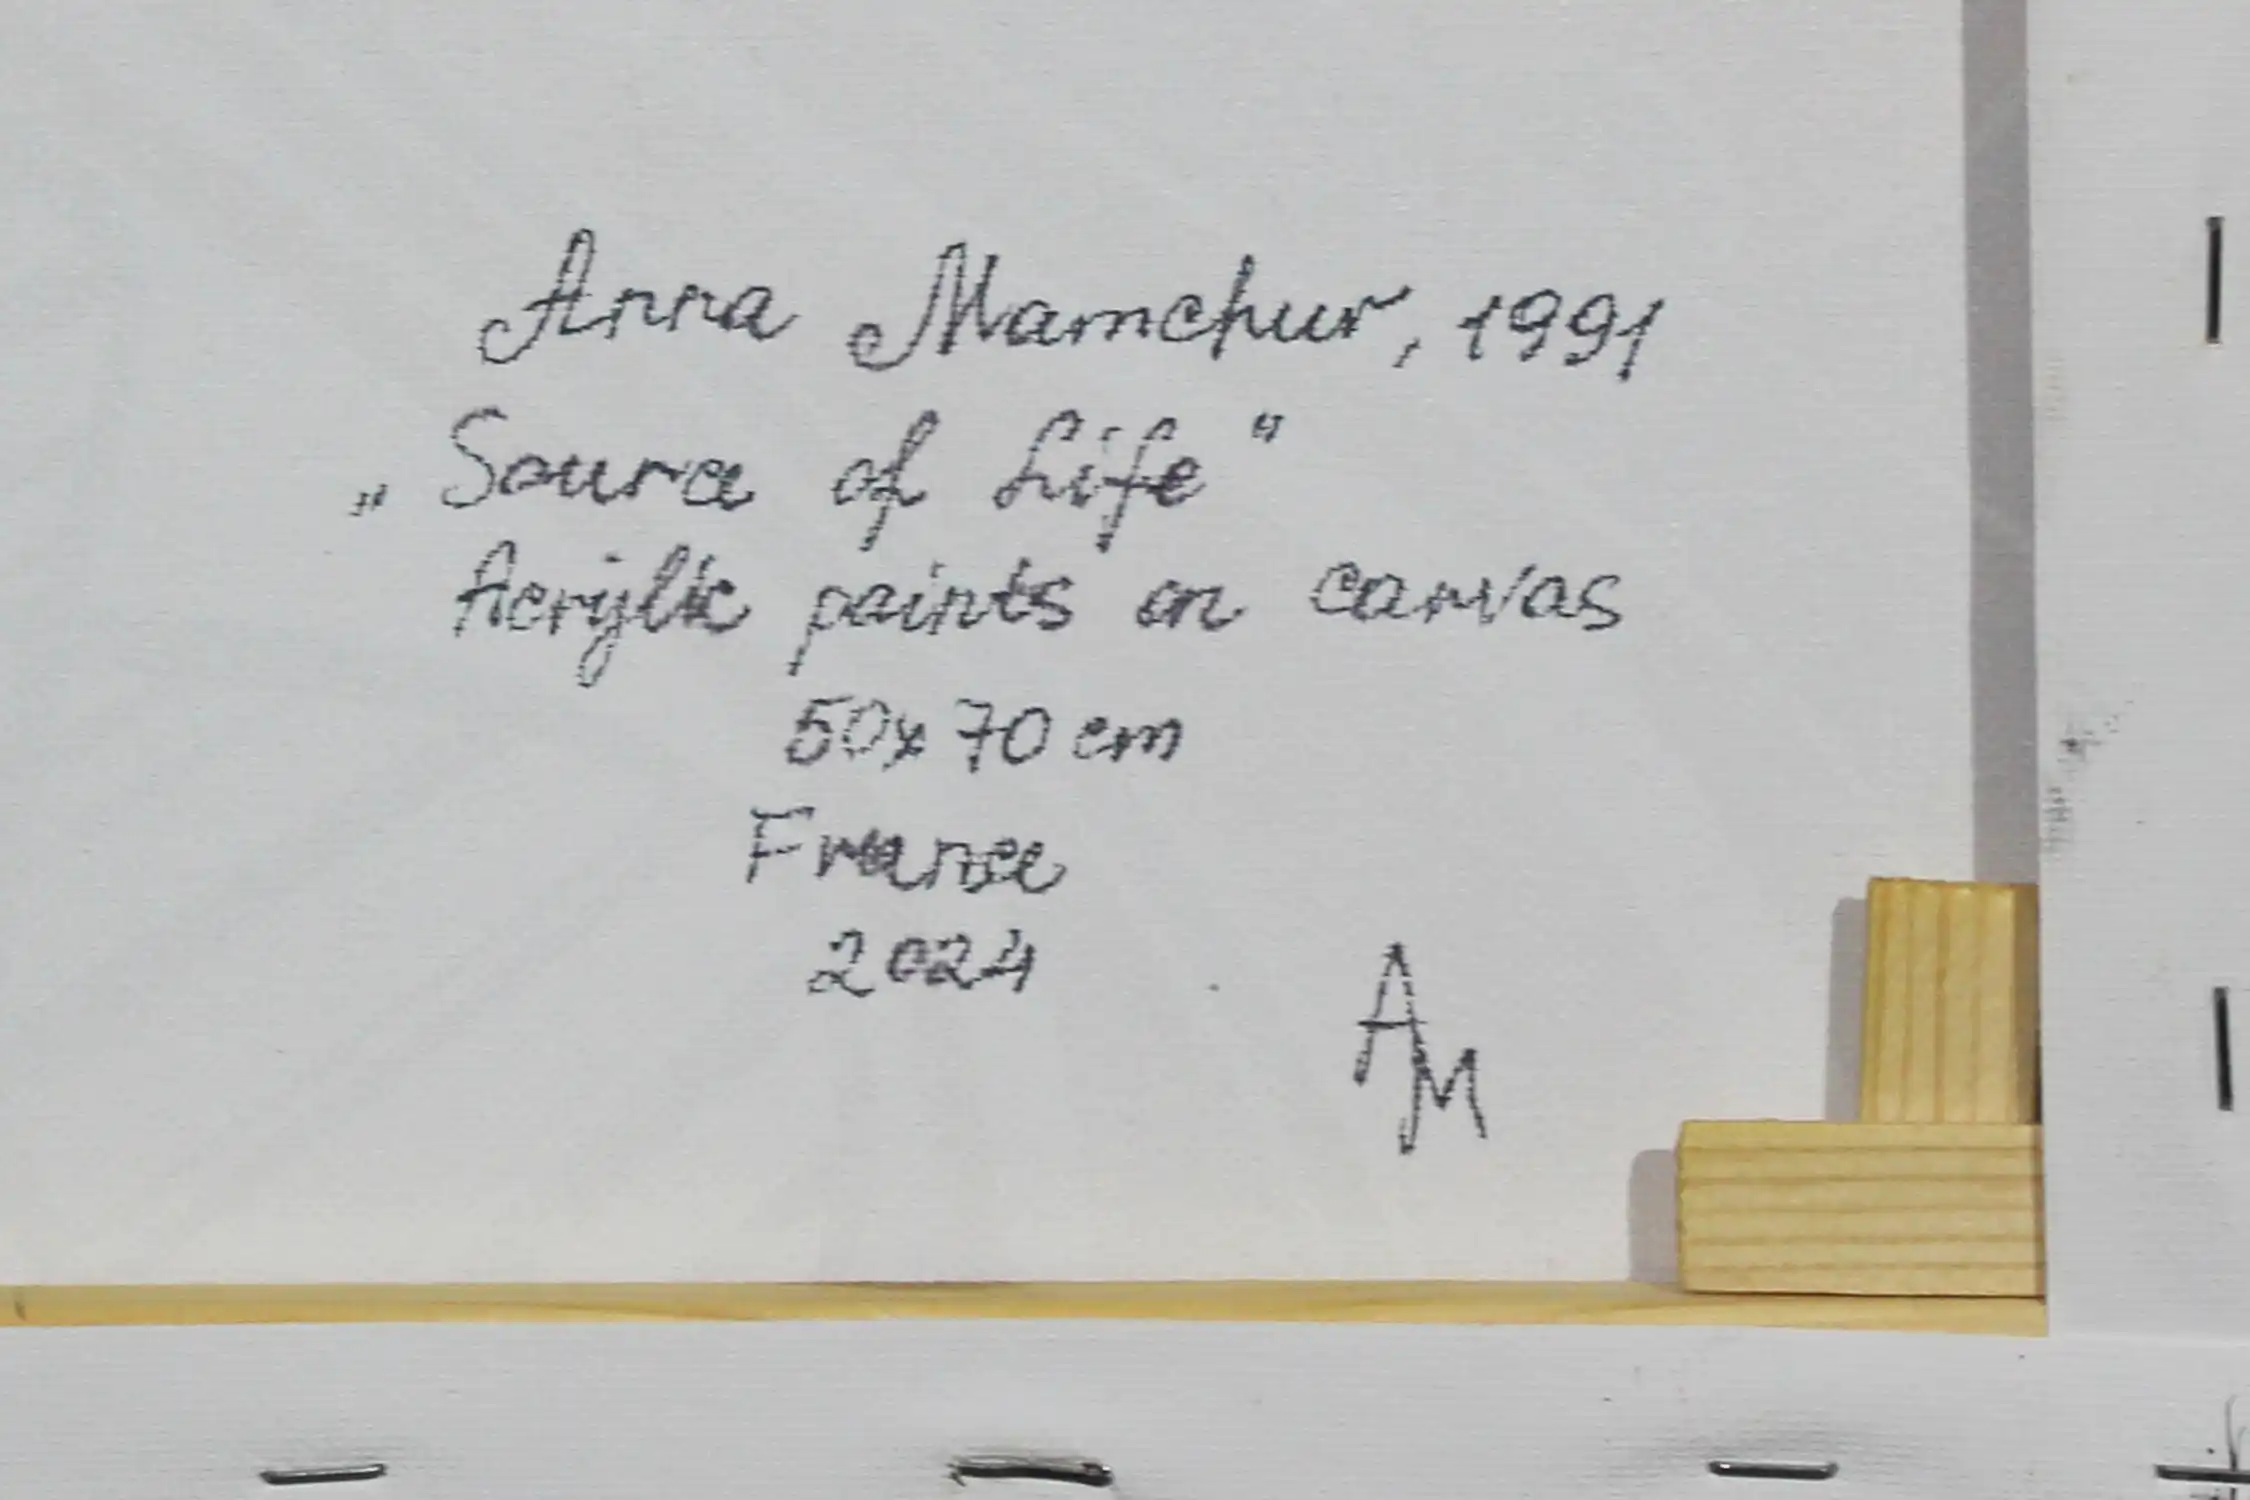 Anna Mamchur, 1991
„Source of Life"
Acrylic paints on canvas
50x70 cm
France
2024
AM